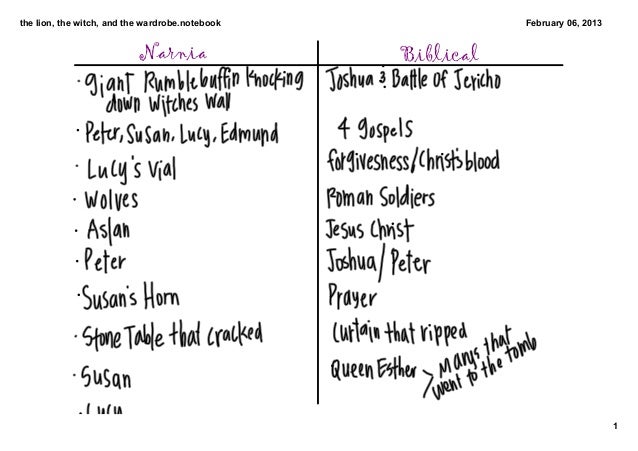 the lion, the witch, and the wardrobe.notebook February 06, 2013
Narnia Biblical
· giant Rumblebuffin knocking down Witches Wall Joshua & Battle of Jericho
· Peter, Susan, Lucy, Edmund 4 gospels
· Lucy's Vial forgivesness/Christ's blood
· Wolves Roman Soldiers
· Aslan Jesus Christ
· Peter Joshua/Peter
· Susan's Horn Prayer
· Stone Table that cracked Curtain that ripped
· Susan Queen Esther > Marys that went to the tomb
· Lucy
1